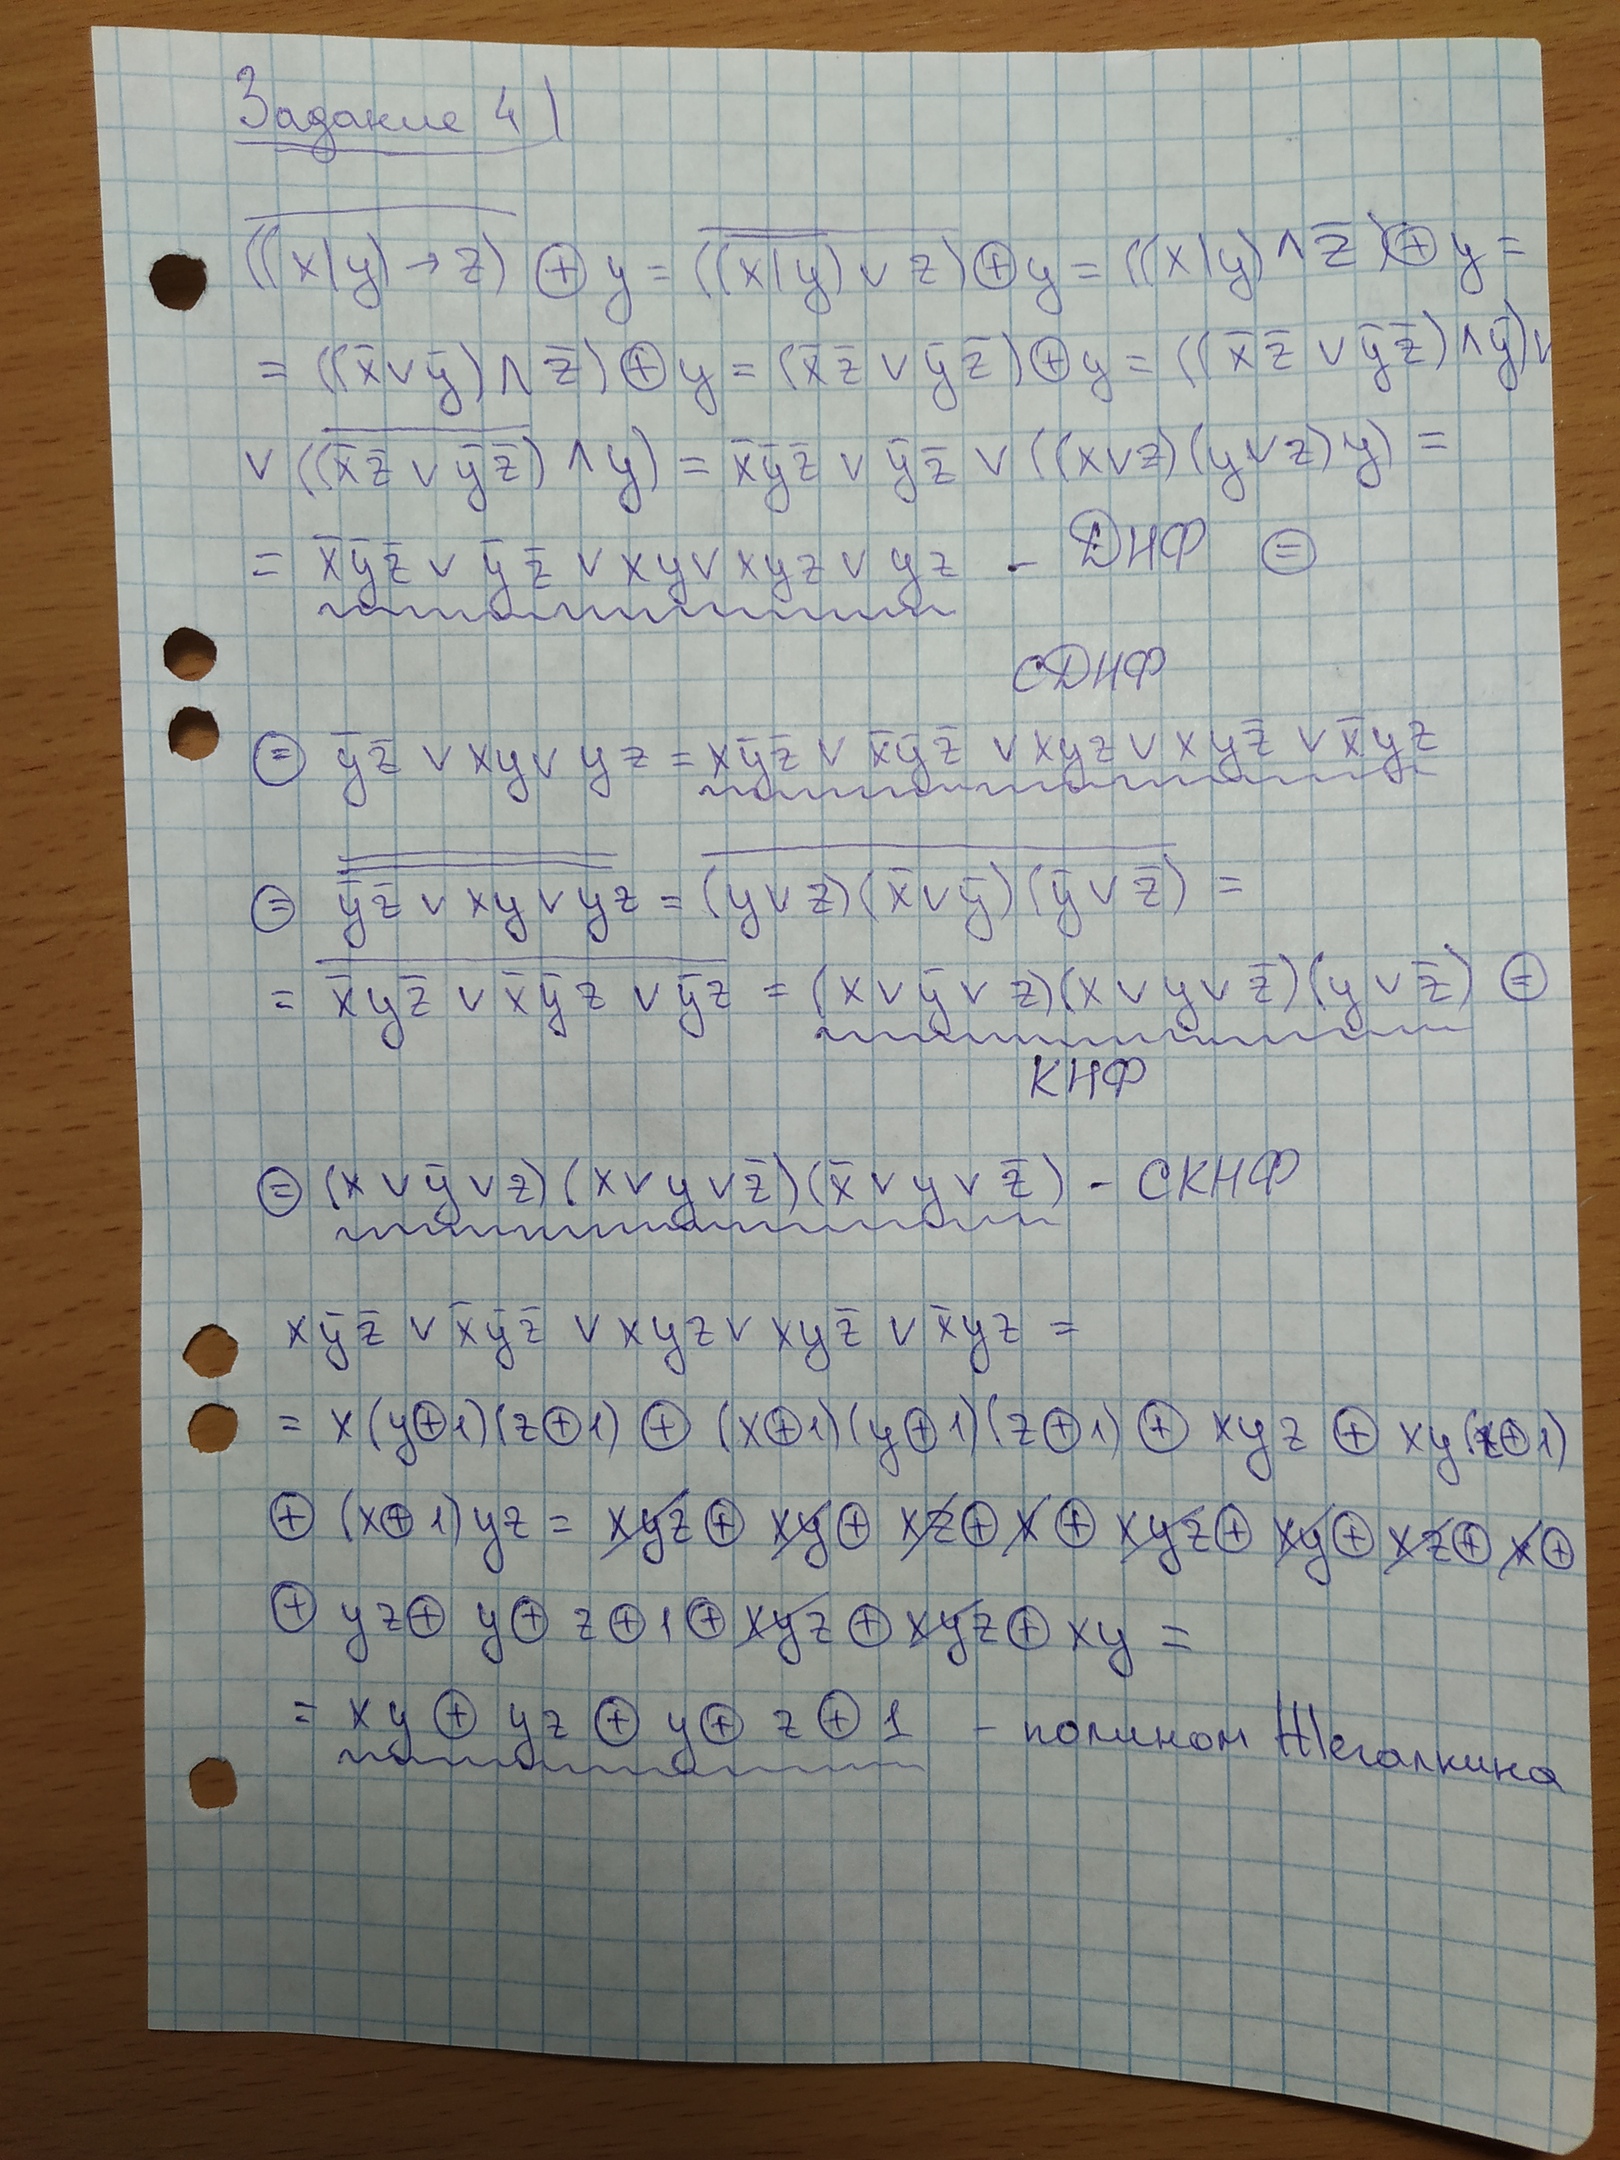 Задание 4
((x|y)→z)‾ ⊕ y = ((x|y)‾ ∨ z)‾ ⊕ y = ((x|y) ∧ z̄) ⊕ y =
= ((x̄ ∨ ȳ) ∧ z̄) ⊕ y = (x̄z̄ ∨ ȳz̄) ⊕ y = ((x̄z̄ ∨ ȳz̄) ∧ ȳ) ∨
∨ ((x̄z̄ ∨ ȳz̄)‾ ∧ y) = x̄ȳz̄ ∨ ȳz̄ ∨ ((x∨z)(y∨z)y) =
= x̄ȳz̄ ∨ ȳz̄ ∨ xy ∨ xyz ∨ yz - ДНФ ⊜
СДНФ
⊜ ȳz̄ ∨ xy ∨ yz = xȳz̄ ∨ x̄ȳz̄ ∨ xyz ∨ xyz̄ ∨ x̄yz
⊜ (ȳz̄ ∨ xy ∨ yz)‾‾ = ((y∨z)(x̄∨ȳ)(ȳ∨z̄))‾ =
= (x̄yz̄ ∨ x̄ȳz ∨ ȳz)‾ = (x ∨ ȳ ∨ z)(x ∨ y ∨ z̄)(y ∨ z̄) ⊜
КНФ
⊜ (x ∨ ȳ ∨ z)(x ∨ y ∨ z̄)(x̄ ∨ y ∨ z̄) - СКНФ
xȳz̄ ∨ x̄ȳz̄ ∨ xyz ∨ xyz̄ ∨ x̄yz =
= x(y⊕1)(z⊕1) ⊕ (x⊕1)(y⊕1)(z⊕1) ⊕ xyz ⊕ xy(z⊕1)
⊕ (x⊕1)yz = xyz ⊕ xy ⊕ xz ⊕ x ⊕ xyz ⊕ xy ⊕ xz ⊕ x ⊕
⊕ yz ⊕ y ⊕ z ⊕ 1 ⊕ xyz ⊕ xyz ⊕ xy =
= xy ⊕ yz ⊕ y ⊕ z ⊕ 1 - полином Жегалкина